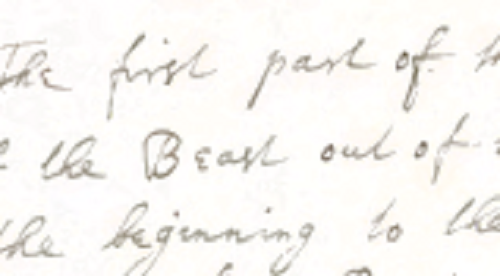 The first part of
the Beast out of
the beginning to the